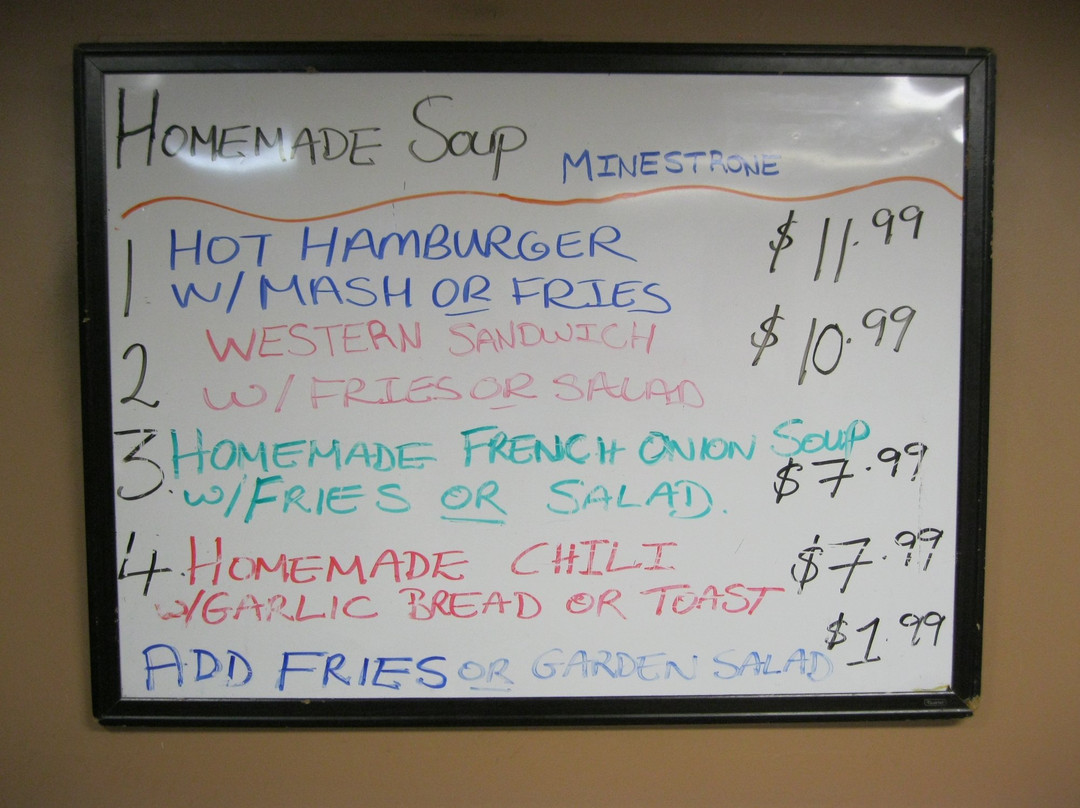 HOMEMADE SOUP MINESTRONE
1 HOT HAMBURGER $11.99
W/ MASH OR FRIES
2 WESTERN SANDWICH $10.99
W/ FRIES OR SALAD
3. HOMEMADE FRENCH ONION SOUP
W/FRIES OR SALAD. $7.99
4. HOMEMADE CHILI $7.99
W/GARLIC BREAD OR TOAST
ADD FRIES OR GARDEN SALAD $1.99